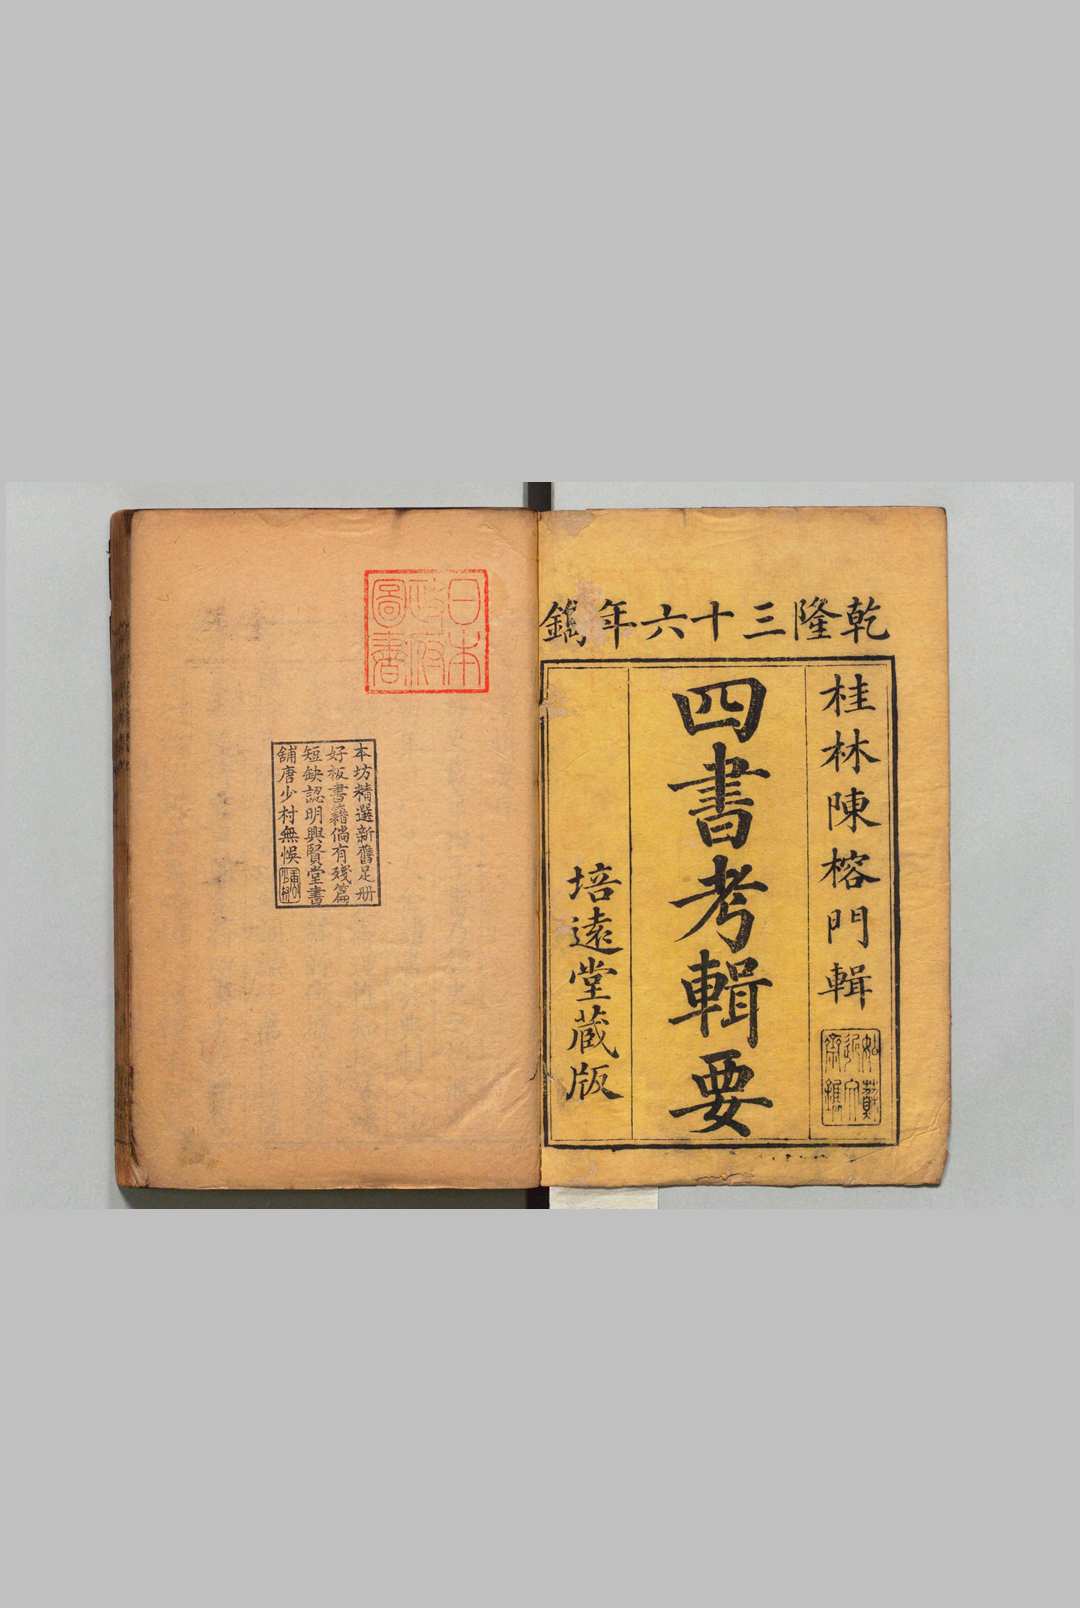 乾隆三十六年鐫
桂林陳榕門輯
四書考輯要
培遠堂藏版
日本
政府
圖書
本坊精選新舊足册
好板書籍倘有殘篇
短缺認明興賢堂書
舖唐少村無悞